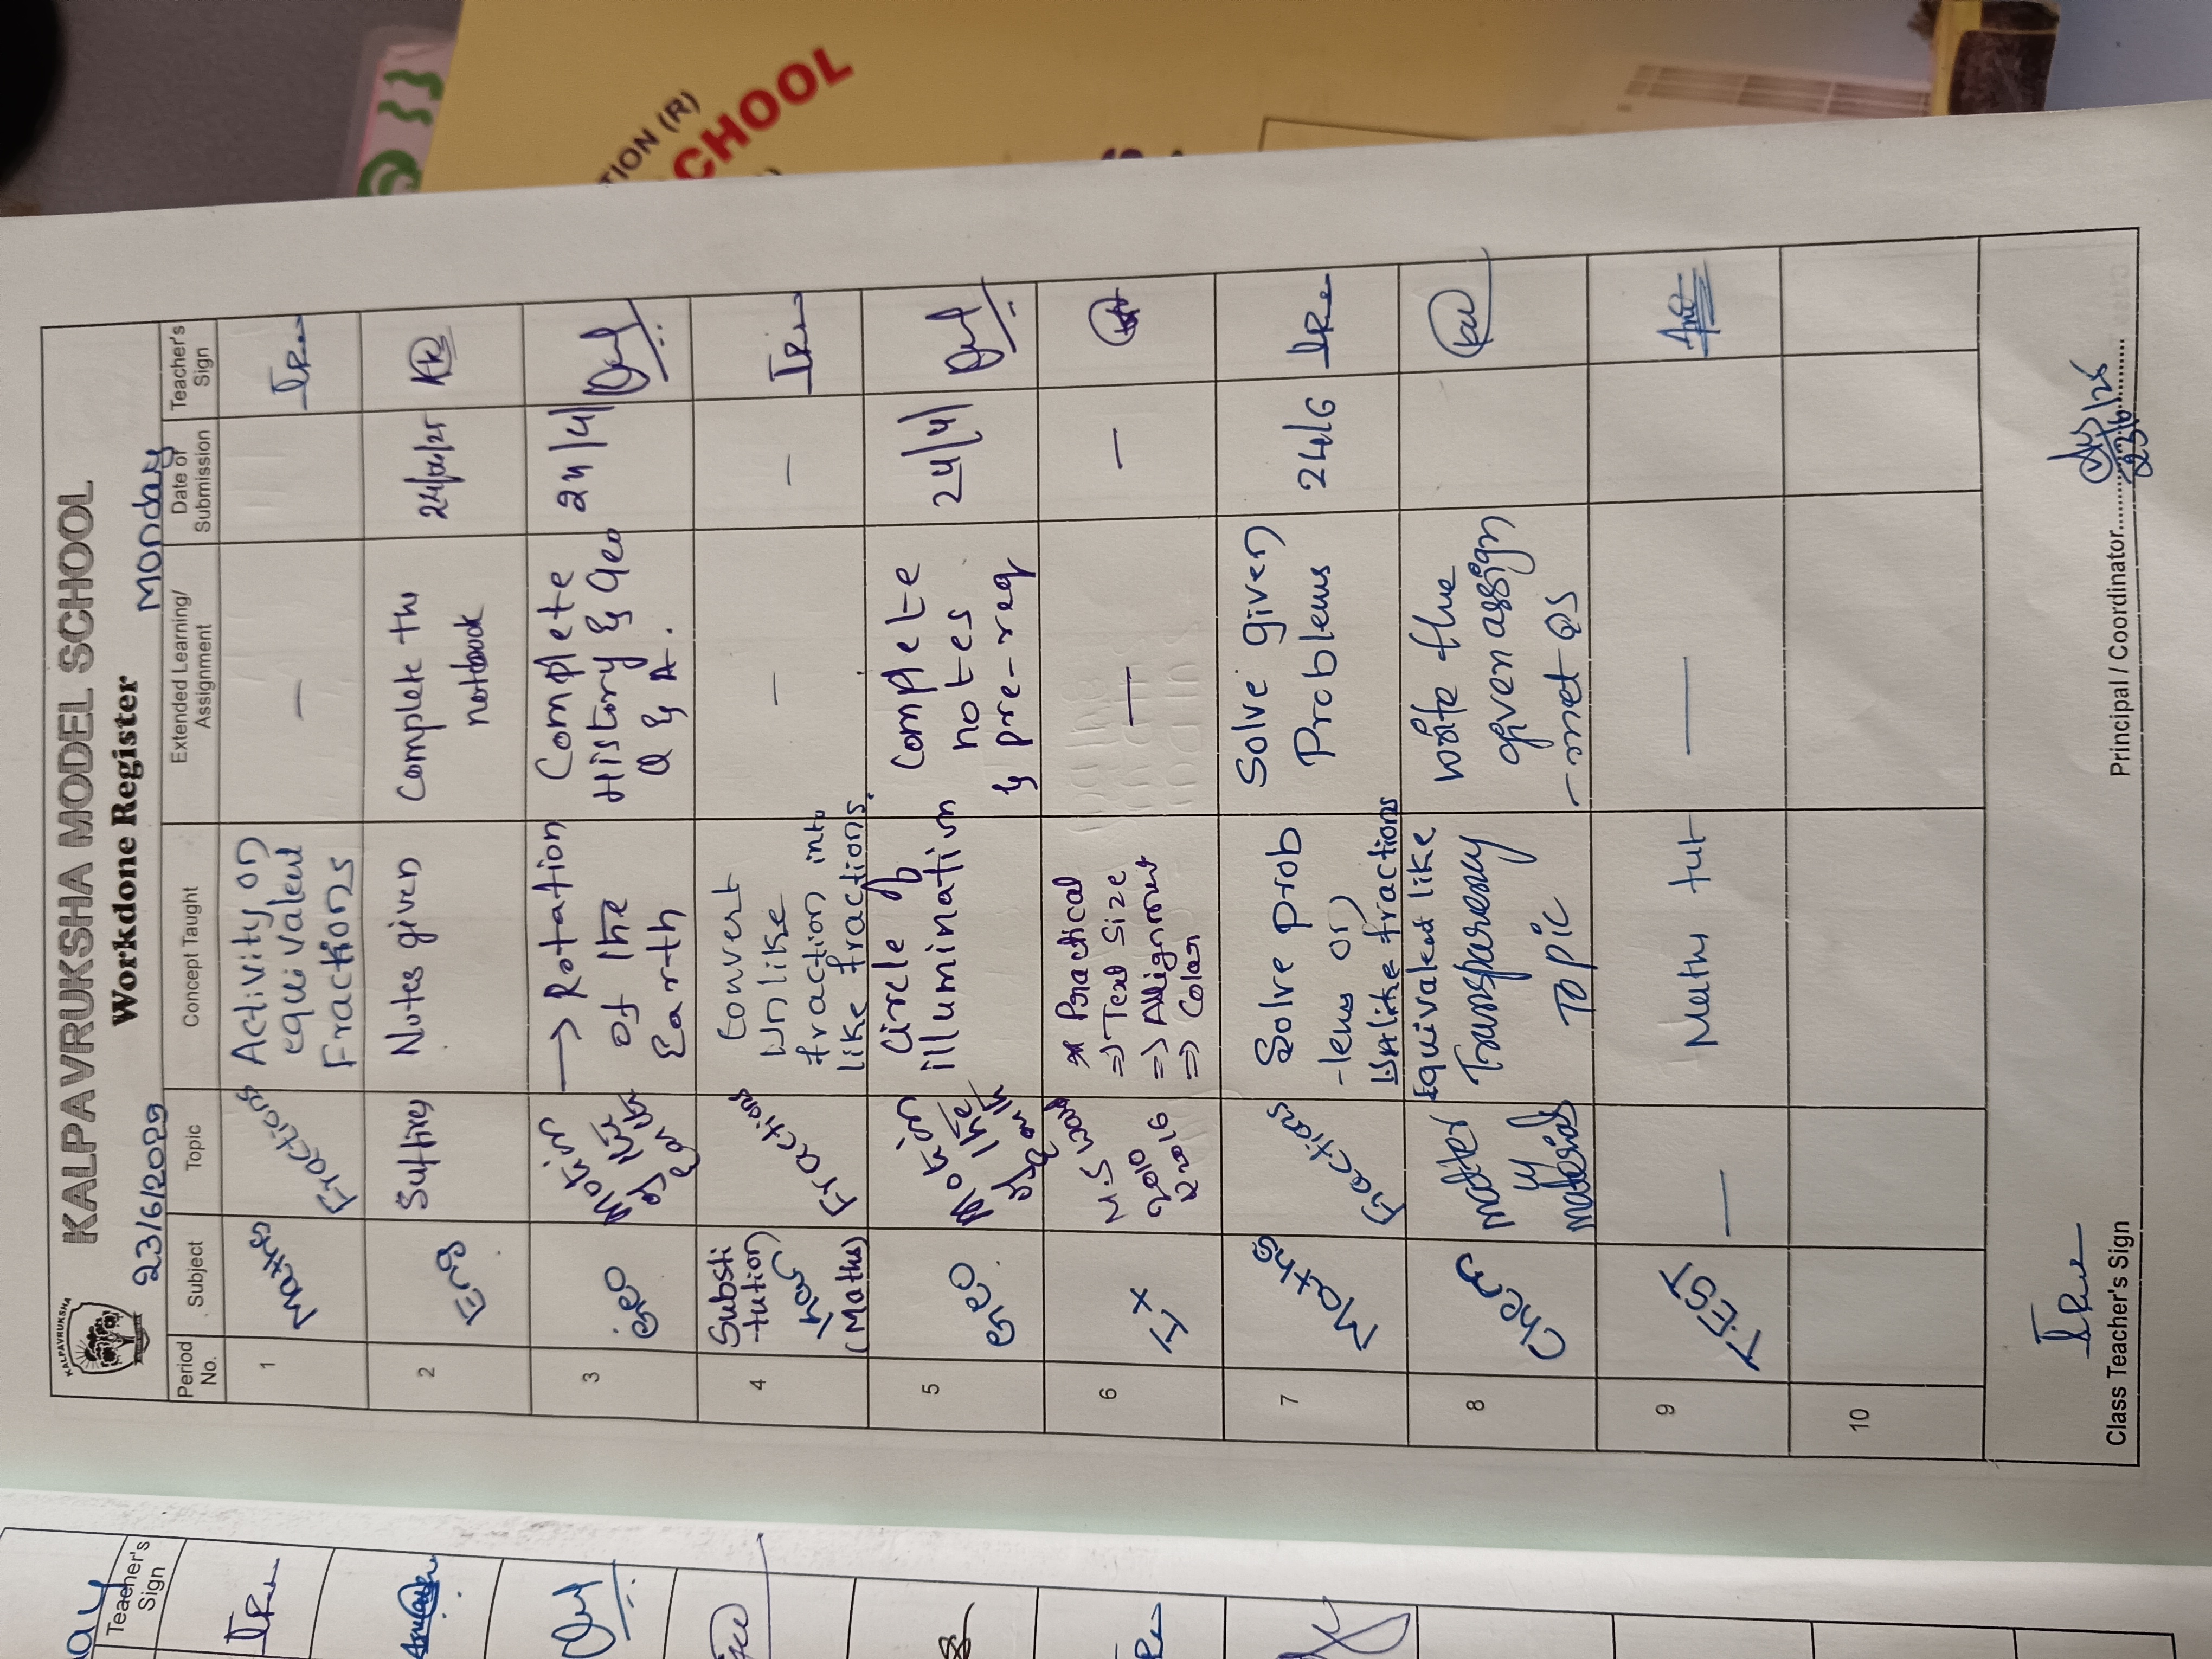 TION (R)
CHOOL
KALPAVRUKSHA
KALPAVRUKSHA MODEL SCHOOL
Workdone Register
23/6/2025
Monday
Period No.
Subject
Topic
Concept Taught
Extended Learning/ Assignment
Date of Submission
Teacher's Sign
1
Maths
Fractions
Activity on
equivalent
Fractions
—
2
Eng
Suffixes
Notes given
Complete the
notebook
3
Geo
Motion
of the
Earth
→ Rotation
of the
Earth
Complete
History & Geo
Q & A.
24/4/
4
Substi
-tution
(Maths)
Fractions
Convert
Unlike
fraction into
like fractions.
—
—
5
Geo
Motion
of the
Earth
Circle of
illumination
Complete
notes
& pre-req
24/4/
6
M.S Word
2010
2016
* Practical
⇒ Text Size
⇒ Allignment
⇒ Color
—
—
7
Maths
Fractions
Solve prob
-lems on
Unlike fractions
Equivalent like
Solve given
Problems
24/6
8
Chem
matter
materials
Transparency
Topic
write the
given assign
-ment Qs
9
TEST
—
Maths tut
—
10
Class Teacher's Sign
Principal / Coordinator
23/6/25
Teacher's
Sign